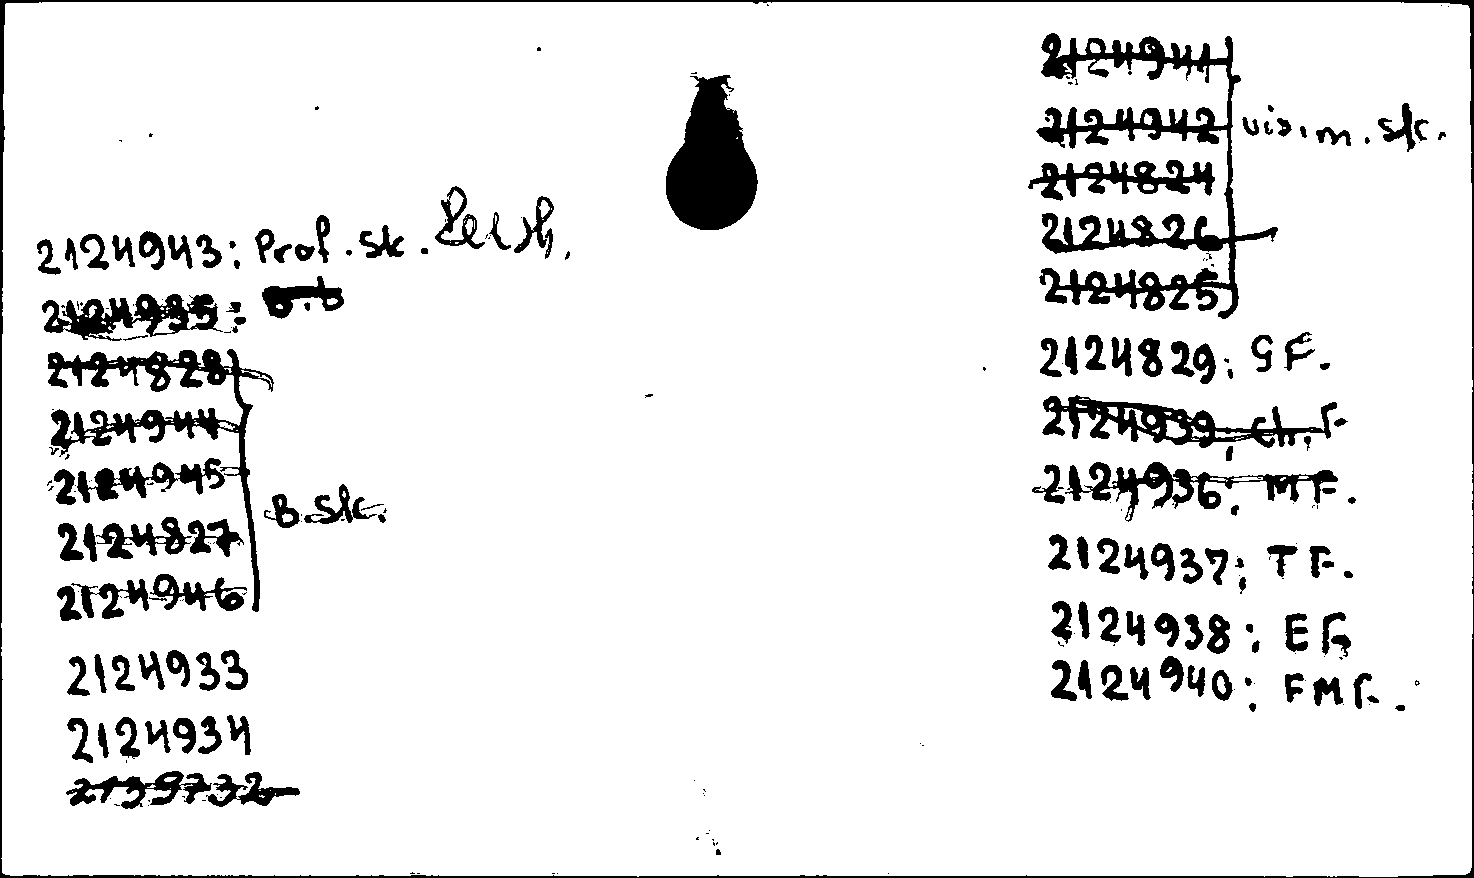 2124943: Prof. sk.
2124935:
2124828
2124944
2124945
2124827
2124946
B.sk.
2124933
2124934
2139732
2124941
2124942
2124824
2124826
2124825
vis.m.sk.
2124829: GF.
2124939: Ch.F
2124936: MF.
2124937: TF.
2124938: EF.
2124940: FMF.